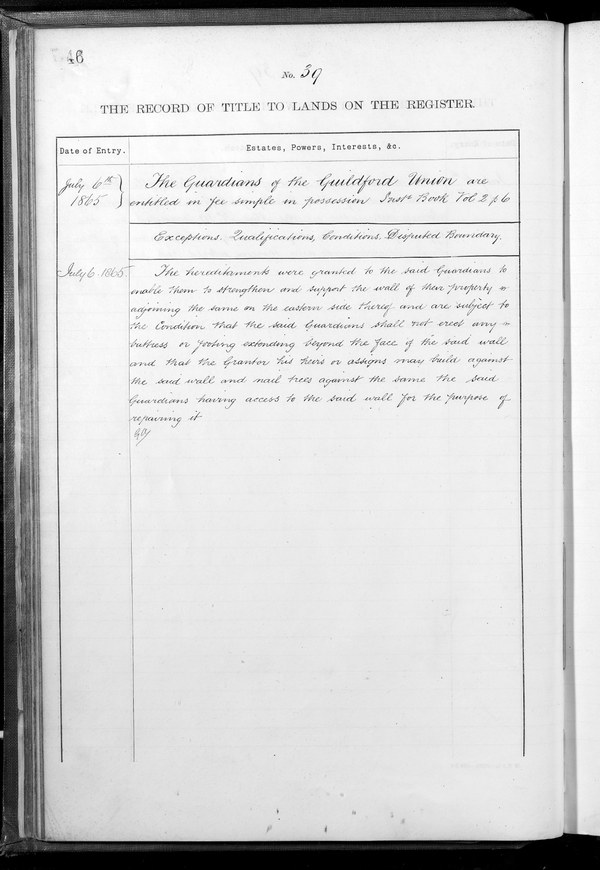 46
No. 39
THE RECORD OF TITLE TO LANDS ON THE REGISTER.
Date of Entry. Estates, Powers, Interests, &c.
July 6th 1865 } The Guardians of the Guildford Union are
entitled in fee simple in possession Inst. Book Vol 2 p 6
Exceptions. Qualifications, Conditions. Disputed Boundary.
July 6. 1865. The hereditaments were granted to the said Guardians to
enable them to strengthen and support the wall of their property
adjoining the same on the eastern side thereof and are subject to
the Condition that the said Guardians shall not erect any
buttress or footing extending beyond the face of the said wall
and that the Grantor his heirs or assigns may build against
the said wall and nail trees against the same the said
Guardians having access to the said wall for the purpose of
repairing it